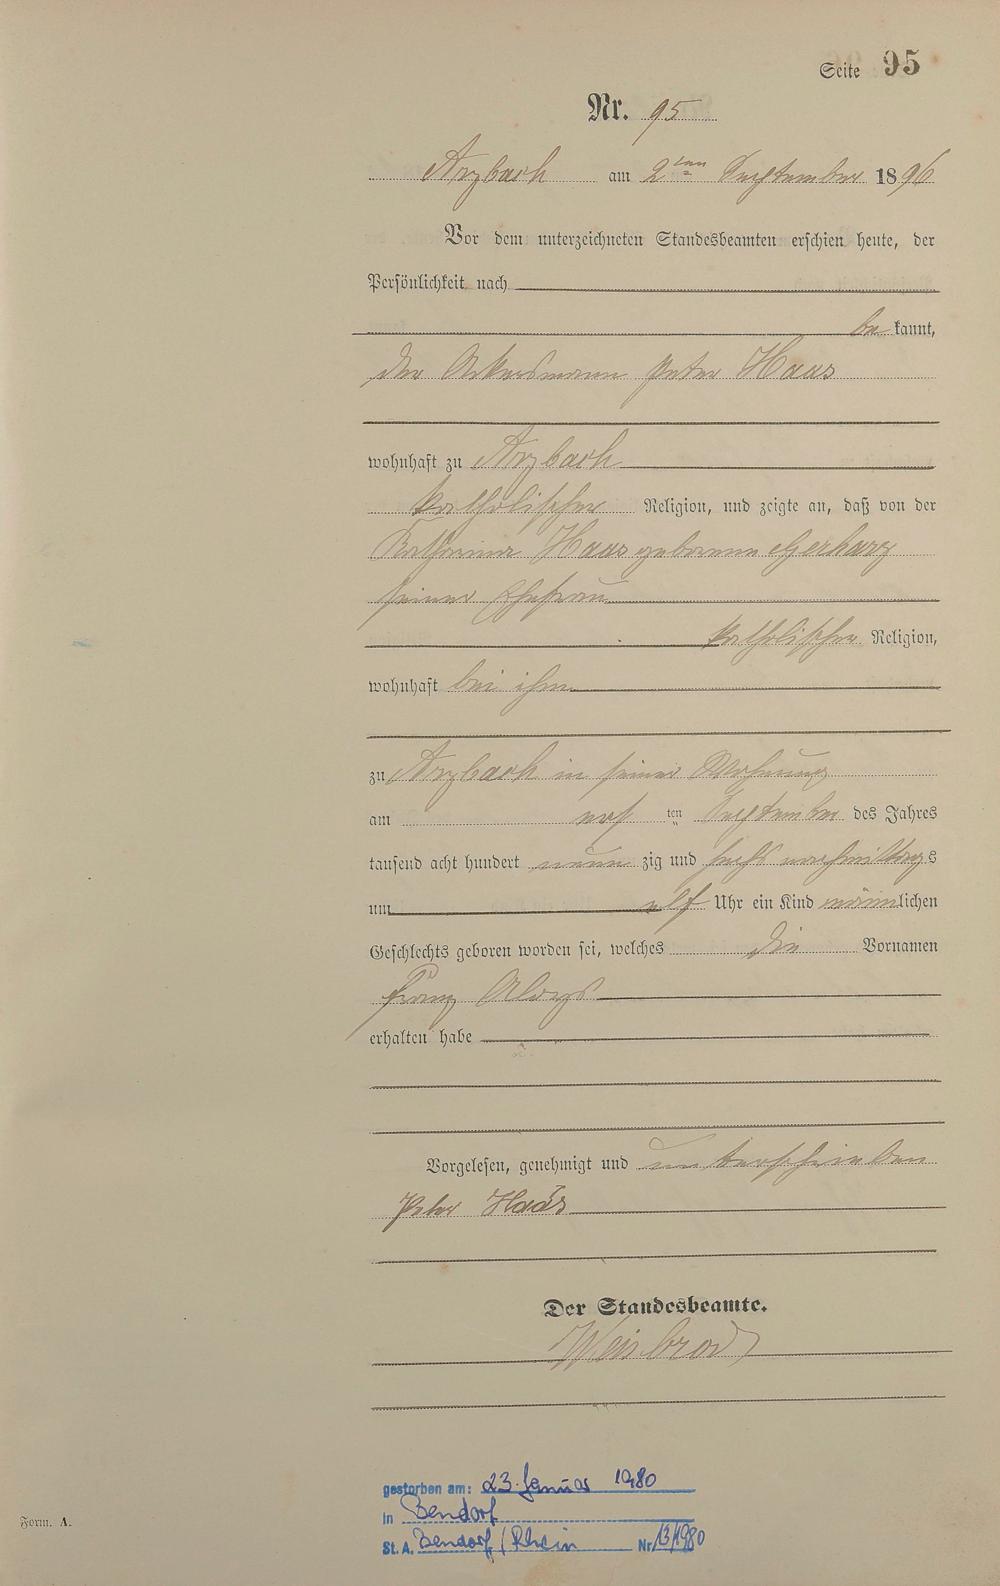 Seite 95
Nr. 95
Arzbach am 2ten September 1896
Vor dem unterzeichneten Standesbeamten erschien heute, der
Persönlichkeit nach
be kannt,
der Ackersmann Peter Haas
wohnhaft zu Arzbach
katholischer Religion, und zeigte an, daß von der
Katharina Haas geborenen Gerharz
seiner Ehefrau
katholischer Religion,
wohnhaft bei ihm
zu Arzbach in seiner Wohnung
am ersten September des Jahres
tausend acht hundert neun zig und sechs nachmittags
um elf Uhr ein Kind männlichen
Geschlechts geboren worden sei, welches die Vornamen
Franz Aloys
erhalten habe
Vorgelesen, genehmigt und unterschrieben
Peter Haas
Der Standesbeamte.
Weisbrod
gestorben am: 23. Januar 1980
in Bendorf
St. A. Bendorf/Rhein Nr 13/1980
Form. A.